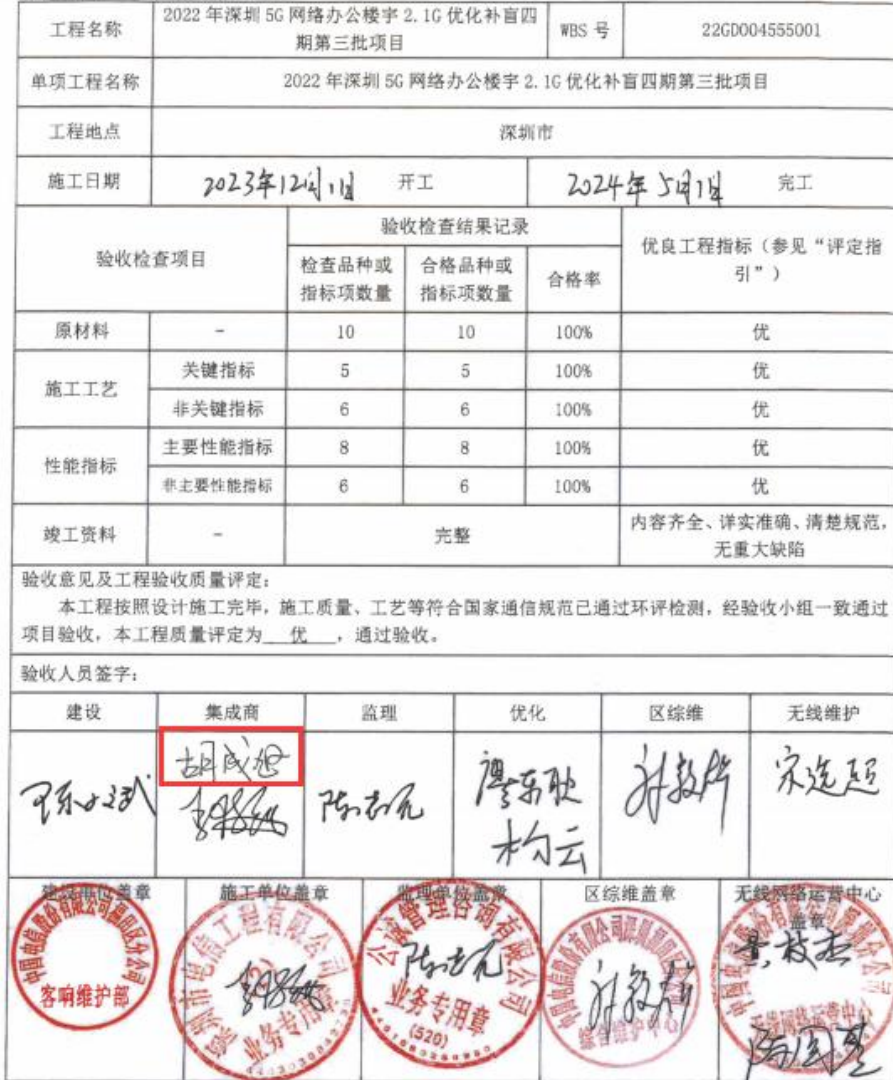 工程名称 2022 年深圳 5G 网络办公楼宇 2.1G 优化补盲四期第三批项目 WBS 号 22GD004555001
单项工程名称 2022 年深圳 5G 网络办公楼宇 2.1G 优化补盲四期第三批项目
工程地点 深圳市
施工日期 2023年12月1日 开工 2024年5月1日 完工
验收检查项目 验收检查结果记录 优良工程指标（参见“评定指引”）
检查品种或指标项数量 合格品种或指标项数量 合格率
原材料 - 10 10 100% 优
施工工艺 关键指标 5 5 100% 优
非关键指标 6 6 100% 优
性能指标 主要性能指标 8 8 100% 优
非主要性能指标 6 6 100% 优
竣工资料 - 完整 内容齐全、详实准确、清楚规范，无重大缺陷
验收意见及工程验收质量评定：
本工程按照设计施工完毕，施工质量、工艺等符合国家通信规范已通过环评检测，经验收小组一致通过
项目验收，本工程质量评定为 优 ，通过验收。
验收人员签字：
建设 集成商 监理 优化 区综维 无线维护
陈志元
建设单位盖章 施工单位盖章 监理单位盖章 区综维盖章 无线网络运营中心盖章
中国电信股份有限公司福田区分公司
客响维护部
深圳市电信工程有限公司
业务专用章
公诚管理咨询有限公司
陈志元
业务专用章
(520)
综合维护中心
无线网络运营中心